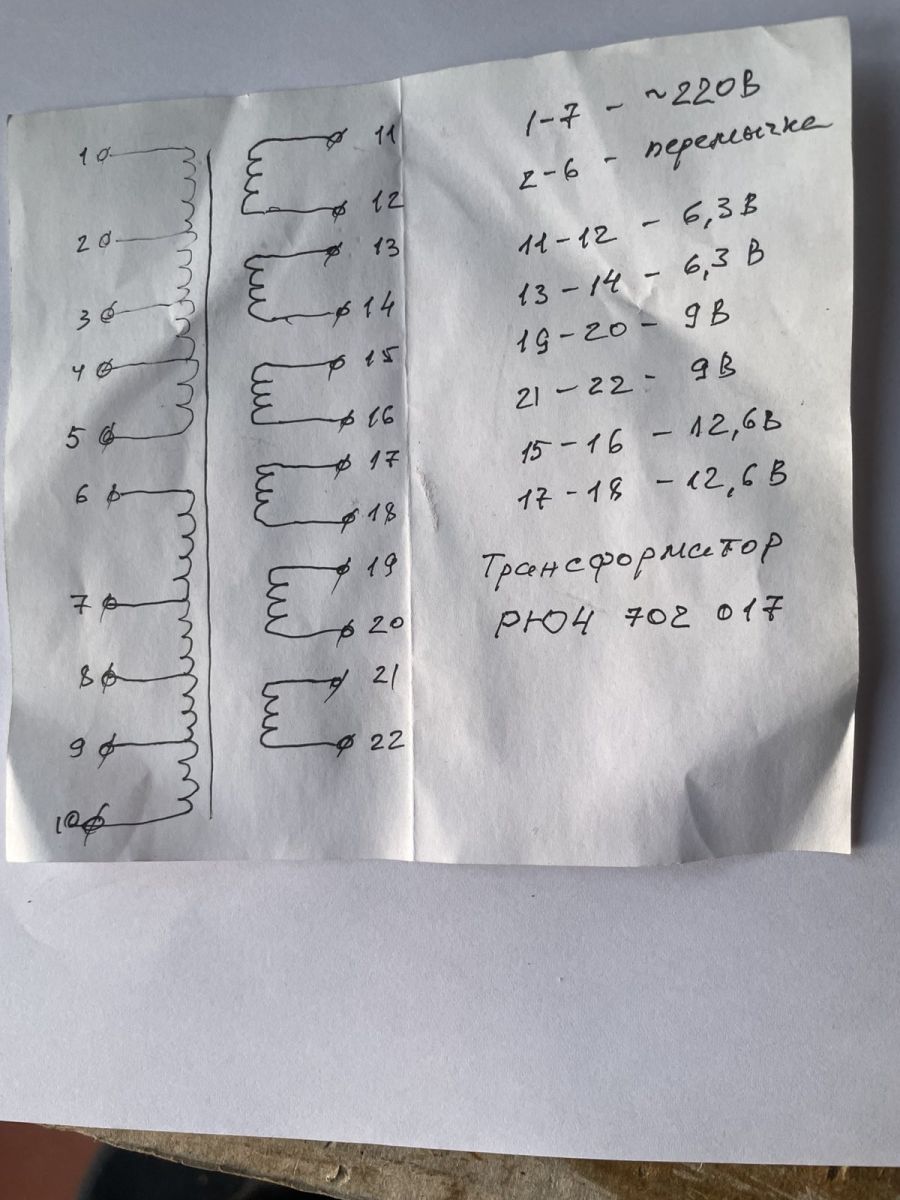 1
2
3
4
5
6
7
8
9
10
11
12
13
14
15
16
17
18
19
20
21
22
1-7 - ~220В
2-6 - перемычка
11-12 - 6,3В
13-14 - 6,3В
19-20 - 9В
21-22 - 9В
15-16 - 12,6В
17-18 - 12,6В
Трансформатор
РЮ4 702 017